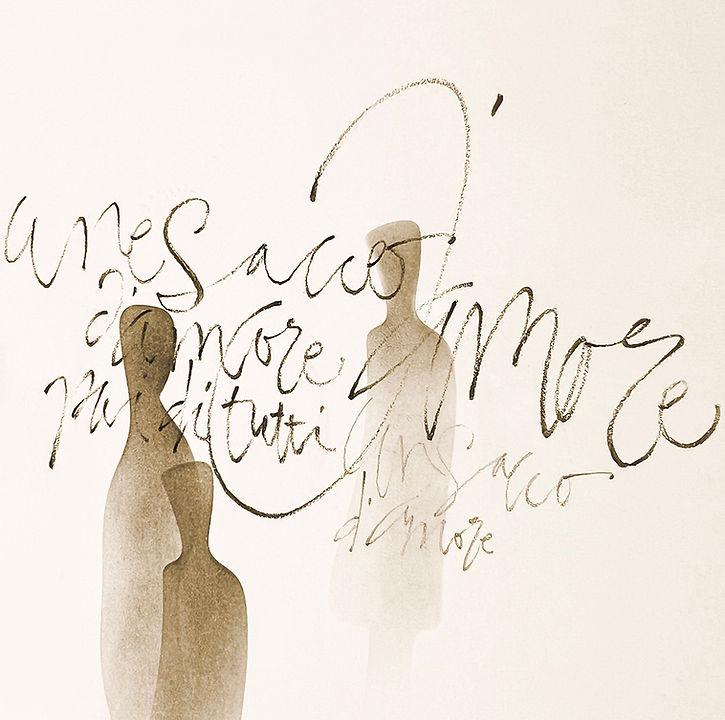 Sacco
d'amore
più di tutti
d'Amore
un sacco
d'amore